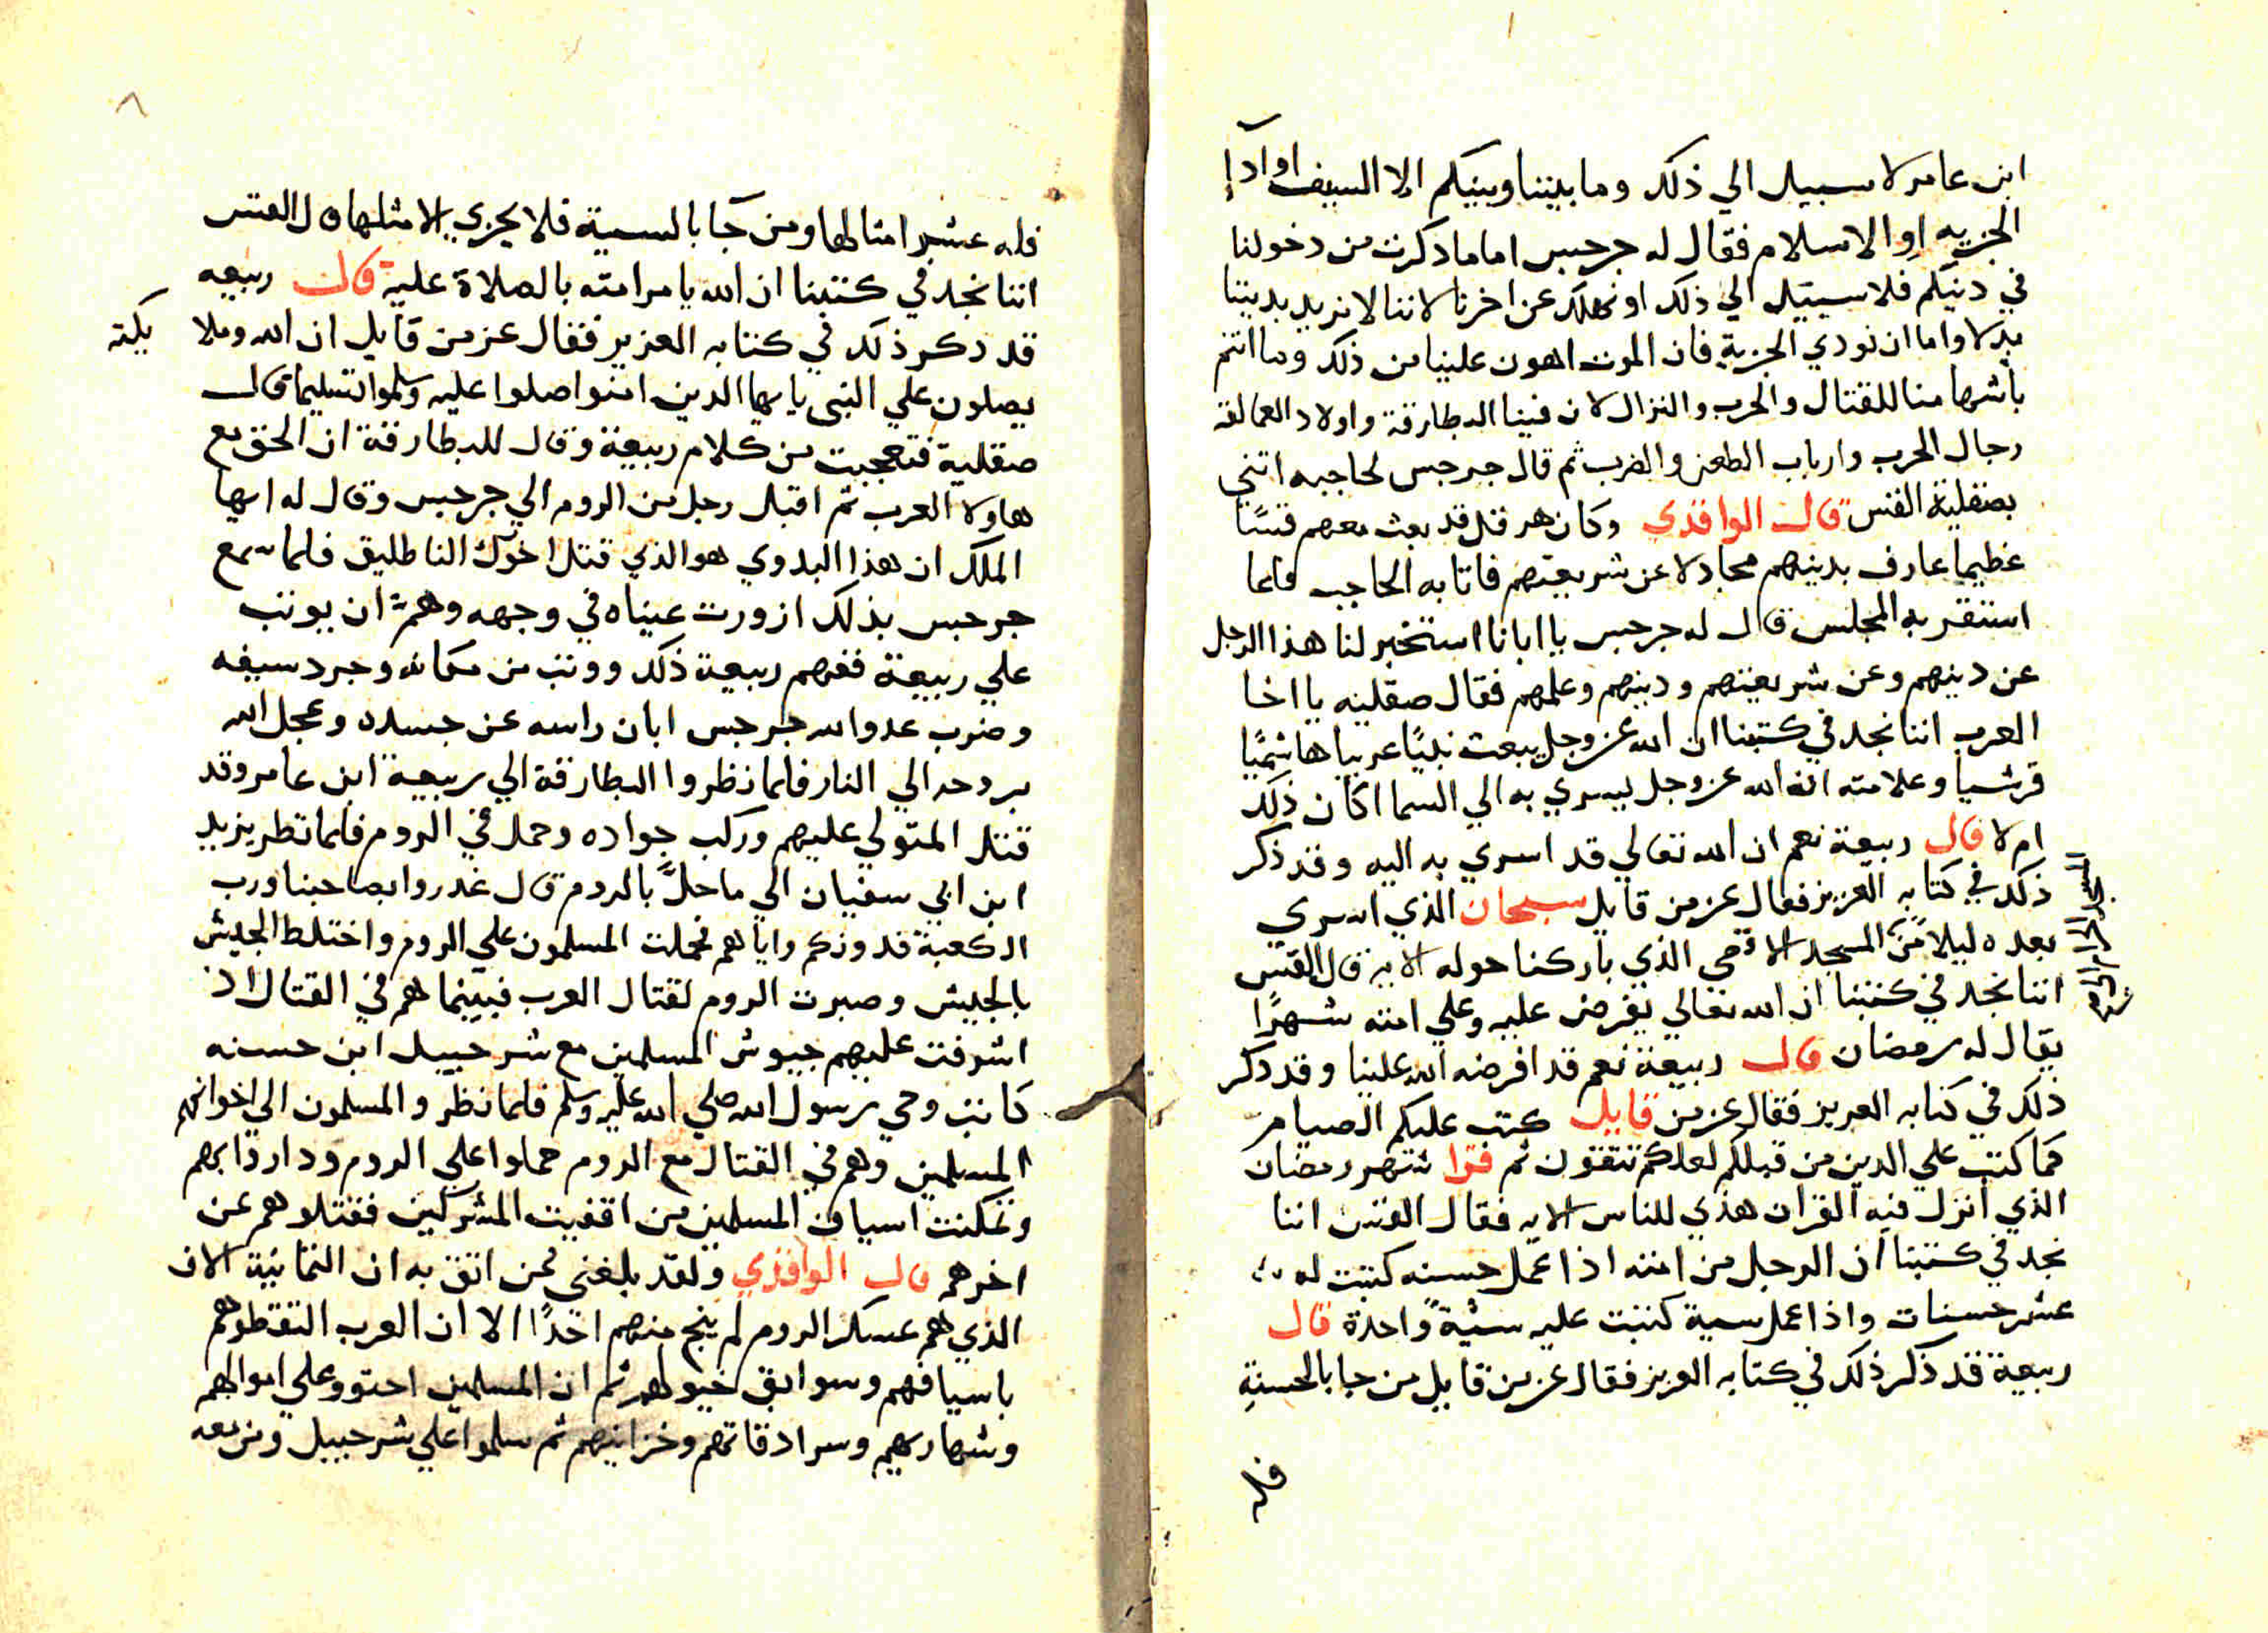 ابن عامر لا سبيل الي ذلك وما بيننا وبينكم الا السيف او ادا
الجزيه او الاسلام فقال له جرجيس اما ما دكرت من دخولنا
في دينكم فلا سبيل الي ذلك او نهلك عن اخرنا لاننا لا نريد بديننا
بدلا واما ان نودي الجزية فان الموت اهون علينا من ذلك وما انتم
باشها منا للقتال والحرب والنزال لان فينا البطارقة واولاد العمالقة
رجال الحرب وارباب الطعن والضرب ثم قال جرجس لحاجبه اتني
بصقلية القس قال الواقدي وكان هرقل قد بعث معهم قسًا
عظيما عارف بدينهم مجادلا عن شريعتهم فاتا به الحاجب فلما
استقر به المجلس قال له جرجس يا ابانا استخبر لنا هذا الرجل
عن دينهم وعن شريعتهم ودينهم وعلمهم فقال صقليه يا اخا
العرب اننا نجد في كتبنا ان الله عز وجل يبعث نبيًا عربيا هاشميًا
قرشيا وعلامته ان الله عز وجل يسري به الي السما اكان ذلك
ام لا قال ربيعة نعم ان الله تعالي قد اسري به اليه وقد ذكر
ذلك في كتابه العزيز فقال عز من قايل سبحان الذي اسري
بعبده ليلا من المسجد الاقصي الذي باركنا حوله الايه قال القس
اننا نجد في كتبنا ان الله تعالي يفرض عليه وعلي امته شهرًا
يقال له رمضان قال ربيعة نعم قد افرضه الله علينا وقد دكر
ذلك في كتابه العزيز فقال عز من قايل كتب عليكم الصيام
كما كتب علي الدين من قبلكم لعلكم تتقون ثم قرا شهر رمضان
الذي انزل فيه القران هدي للناس الايه فقال القس اننا
نجد في كتبنا ان الرجل من امته اذا عمل حسنه كتبت له
عشر حسنات واذا عمل سية كتبت عليه سيئةً واحدة قال
ربيعة قد ذكر ذلك في كتابه العزيز فقال عز من قايل من جا بالحسنة
فله
٨
فله عشر امثالها ومن جا بالسية فلا يجزي الا مثلها قال القس
اننا نجد في كتبنا ان الله يامر امته بالصلاة عليه قال ربيعه
قد دكر ذلك في كتابه العزيز فقال عز من قايل ان الله وملا يكته
يصلون علي النبي يايها الدين امنوا صلوا عليه وسلموا تسليما قال
صقلية فتعجبت من كلام ربيعة وقال للبطارقة ان الحق مع
هاولا العرب ثم اقبل رجل من الروم الي جرجيس وقال له ايها
الملك ان هذا البدوي هو الذي قتل اخوك الناطليق فلما سمع
جرجيس بذلك ازورت عيناه في وجهه وهمّ ان يوثب
علي ربيعة ففهم ربيعة ذلك ووثب من مكانه وجرد سيفه
وضرب عدوا الله جرجس ابان راسه عن جسده وعجل الله
بروحه الي النار فلما نظروا البطارقة الي ربيعة ابن عامر وقد
قتل المتولي عليهم وركب جواده وحمل في الروم فلما نظر يزيد
ابن ابي سفيان الي ما حلّ بالروم قال غدروا بصاحبنا ورب
الكعبة فدونكم واياهم فحملت المسلمون علي الروم واختلط الجيش
بالجيش وصبرت الروم لقتال العرب فبينما هم في القتال اذ
اشرفت عليهم جيوش المسلمين مع شرحبيل ابن حسنه
كاتب وحي رسول الله صلي الله عليه وسلم فلما نظرو المسلمون الي اخوانهم
المسلمين وهم في القتال مع الروم حملوا علي الروم ودار دابرهم
وتمكنت اسياف المسلمين من اقفيت المشركين فقتلوهم عن
اخرهم قال الواقدي ولقد بلغني ممن اثق به ان الثمانية الاف
الذي هم عسكر الروم لم ينج منهم احدًا الا ان العرب التقطوهم
باسيافهم وسوابق خيولهم ثم ان المسلمين احتوو علي اموالهم
وشهاريهم وسرادقاتهم وخزاينهم ثم سلموا علي شرحبيل ومن معه